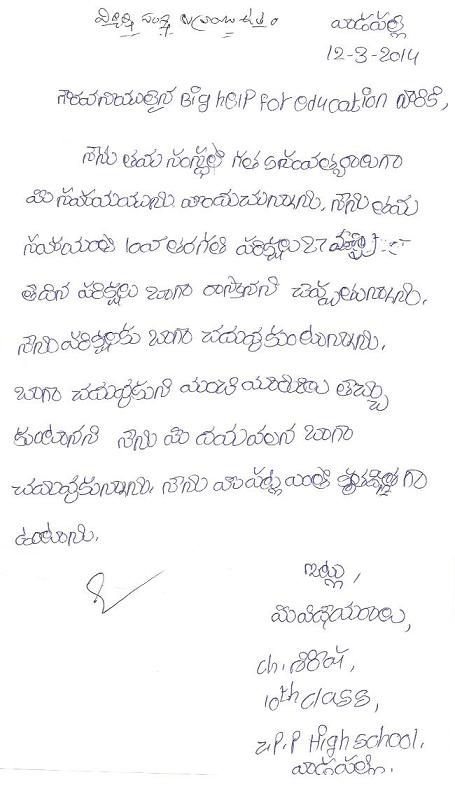 వాడపల్లి
12-3-2014
గౌరవనీయులైన Big help for education వారికి,
నేను తమ సంస్థలో గత 5 సంవత్సరాలుగా
మీ సహాయమును పొందుచున్నాను. నేను తమ
సహాయంతో 10వ తరగతి పరీక్షలు 27
తేదిన పరీక్షలు బాగా రాస్తానని చెప్పుతున్నాను.
నేను పరీక్షలకు బాగా చదువుకుంటున్నాను.
బాగా చదువుకుని మంచి మార్కులు తెచ్చు
కుంటానని నేను మీ దయవలన బాగా
చదువుకున్నాను. నేను మీ పట్ల ఎంతో కృతజ్ఞురాలుగా
ఉంటాను.
ఇట్లు,
మీ విధేయురాలు,
ch. శిరీష,
10th class,
Z.P.P High school,
వాడపల్లి.